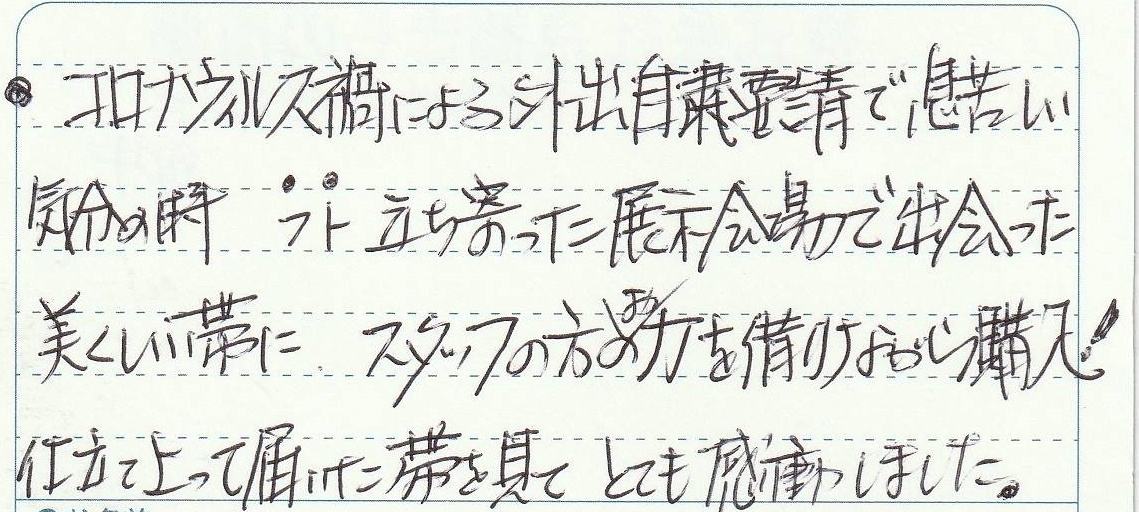 ●コロナウィルス禍による外出自粛要請で息苦しい
気分の時 フト立ち寄った展示会場で出会った
美しい帯に スタッフの方のお力を借りながら購入!
仕立て上って届けた帯を見て とても感動しました。